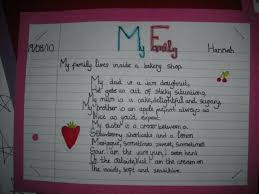 My Family
19/08/10
Hannah
My family lives inside a bakery shop
My dad is a jam doughnut,
He gets us out of sticky situations,
My mum is a cake, delightful and sugary,
My brother is an apple pie, not always as
Nice as you'd expect.
My sister is a cross between a
Strawberry shortcake and a lemon
Meringue, sometimes sweet, sometimes
Sour. I am the ivory
the outside, And I am the cream on
The inside, soft and sensitive.